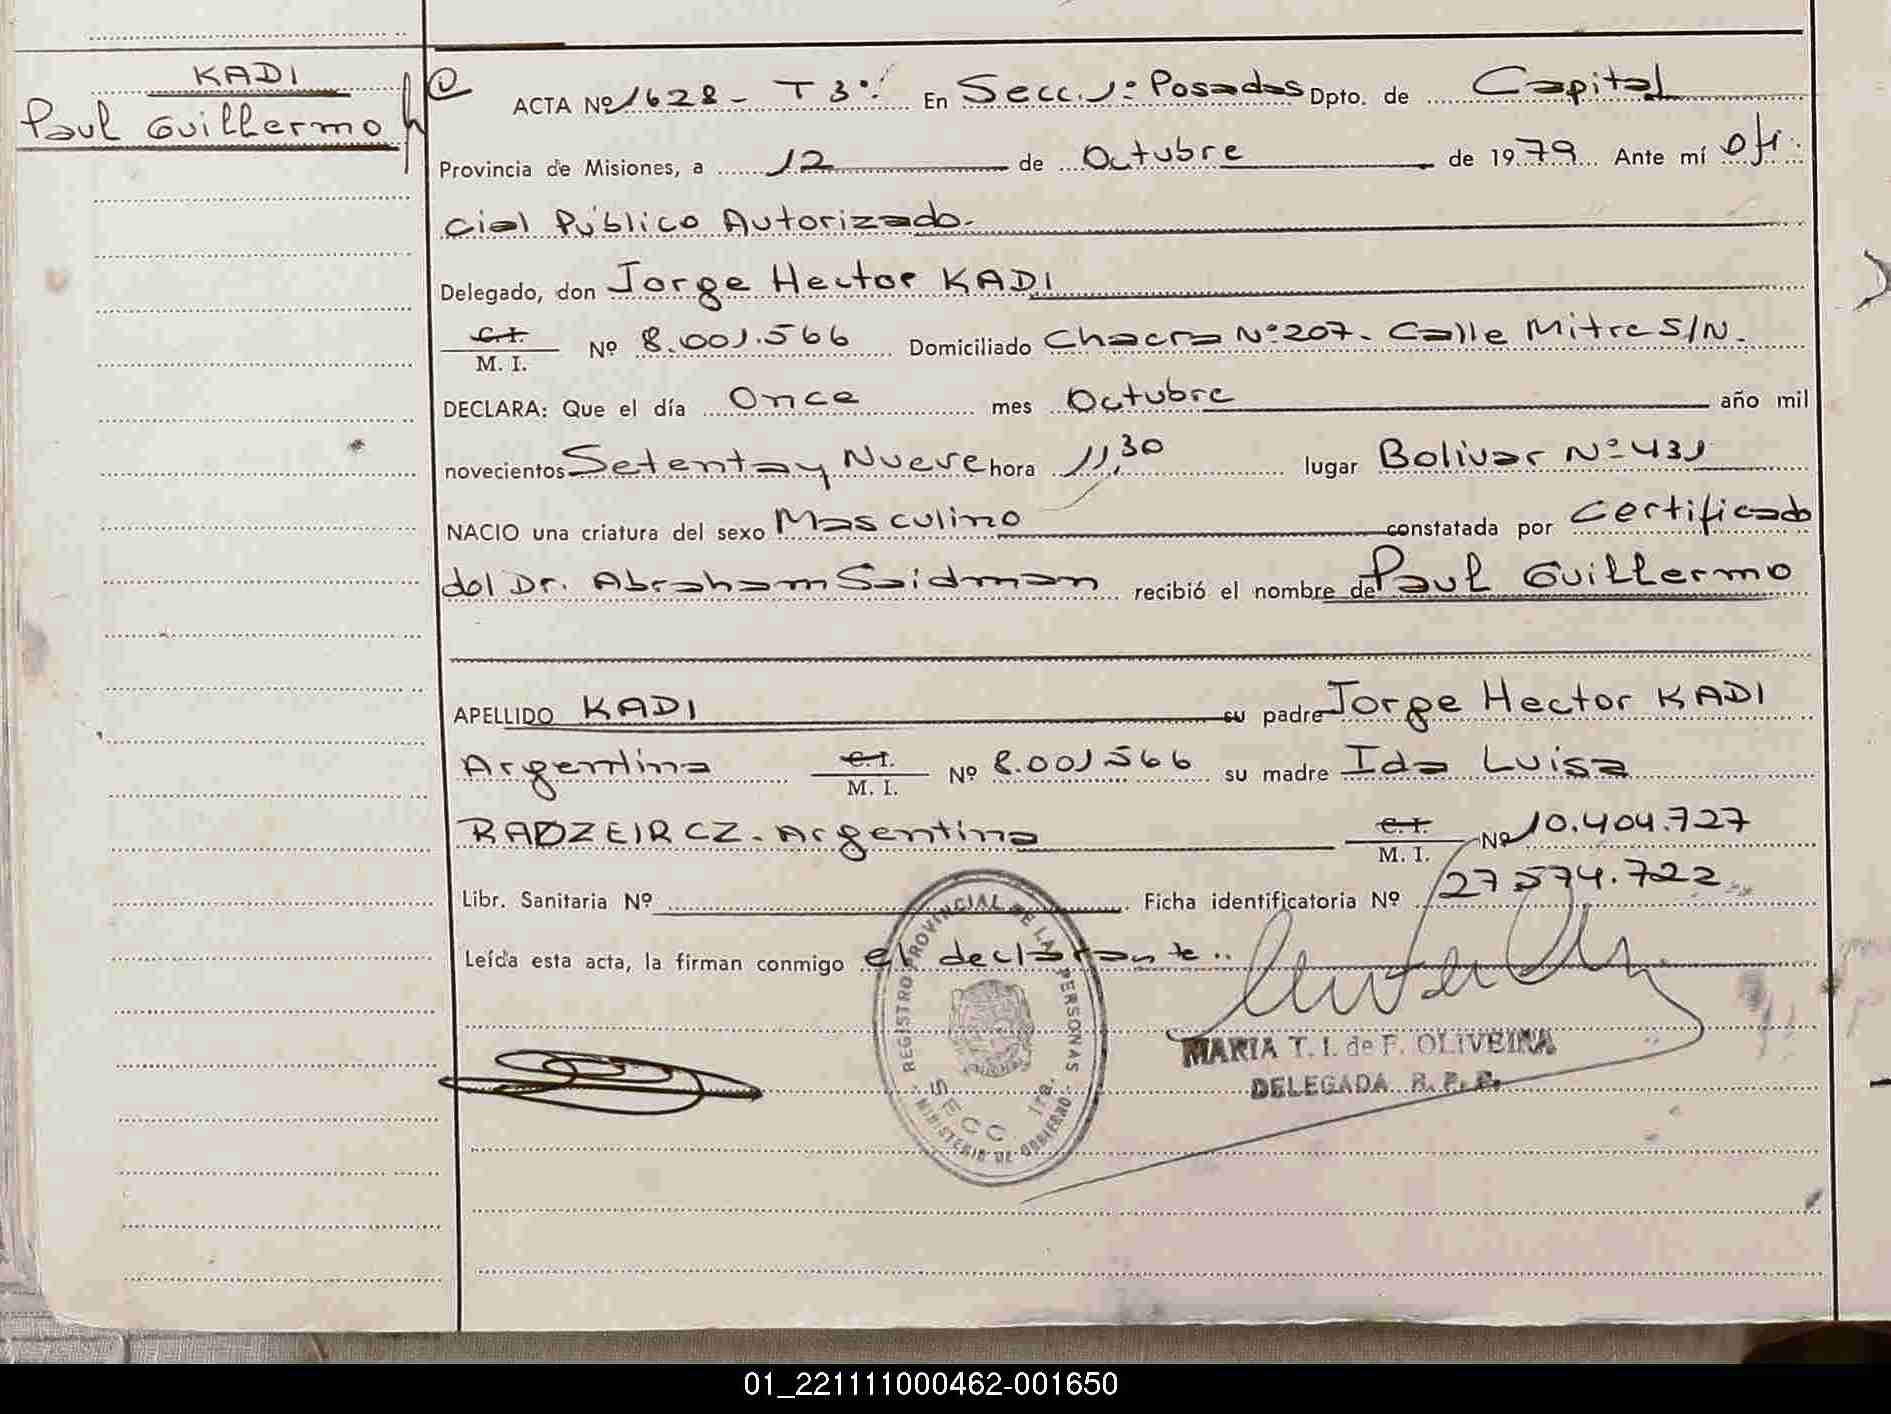 KADI
Paul Guillermo
ACTA Nº 1628 - T 3º En Secc. 1º Posadas Dpto. de Capital
Provincia de Misiones, a 12 de Octubre de 1979 Ante mí Ofi
cial Público Autorizado.
Delegado, don Jorge Hector KADI
C.I. M. I. Nº 8.001.566 Domiciliado Chacra Nº 207. Calle Mitre S/N.
DECLARA: Que el día Once mes Octubre año mil
novecientos Setenta y Nueve hora 11,30 lugar Bolivar Nº 431
NACIO una criatura del sexo Masculino constatada por Certificado
del Dr. Abraham Saidman recibió el nombre de Paul Guillermo
APELLIDO KADI su padre Jorge Hector KADI
Argentina C.I. M. I. Nº 8.001566 su madre Ida Luisa
RADZEIRCZ. Argentina C.I. M. I. Nº 10.404.727
Libr. Sanitaria Nº Ficha identificatoria Nº 27574.722
Leída esta acta, la firman conmigo el declarante..
REGISTRO PROVINCIAL DE LAS PERSONAS
SECC 1ra.
MINISTERIO DE GOBIERNO
MARIA T. I. de F. OLIVEIRA
DELEGADA R. P. P.
01_221111000462-001650